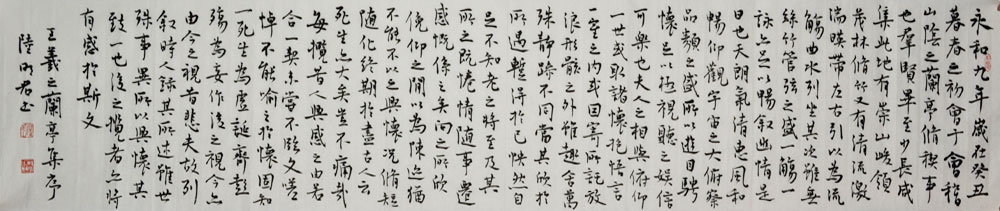 永和九年歲在癸丑
暮春之初會于會稽
山陰之蘭亭脩禊事
也羣賢畢至少長咸
集此地有崇山峻領
茂林脩竹又有清流激
湍暎帶左右引以為流
觴曲水列坐其次雖無
絲竹管弦之盛一觴一
詠亦足以暢敘幽情是
日也天朗氣清惠風和
暢仰觀宇宙之大俯察
品類之盛所以遊目騁
懷足以極視聽之娛信
可樂也夫人之相與俯仰
一世或取諸懷抱悟言
一室之內或因寄所託放
浪形骸之外雖趣舍萬
殊静躁不同當其欣於
所遇暫得於己怏然自
足不知老之將至及其
所之既惓情隨事遷
感慨係之矣向之所欣
俛仰之閒以為陳迹猶
不能不以之興懷況脩短
隨化終期於盡古人云
死生亦大矣豈不痛哉
每攬昔人興感之由若
合一契未嘗不臨文嗟
悼不能喻之於懷固知
一死生為虛誕齊彭
殤為妄作後之視今亦
由今之視昔悲夫故列
敘時人錄其所述雖世
殊事異所以興懷其
致一也後之攬者亦將
有感於斯文
王羲之蘭亭集序
陸明君书